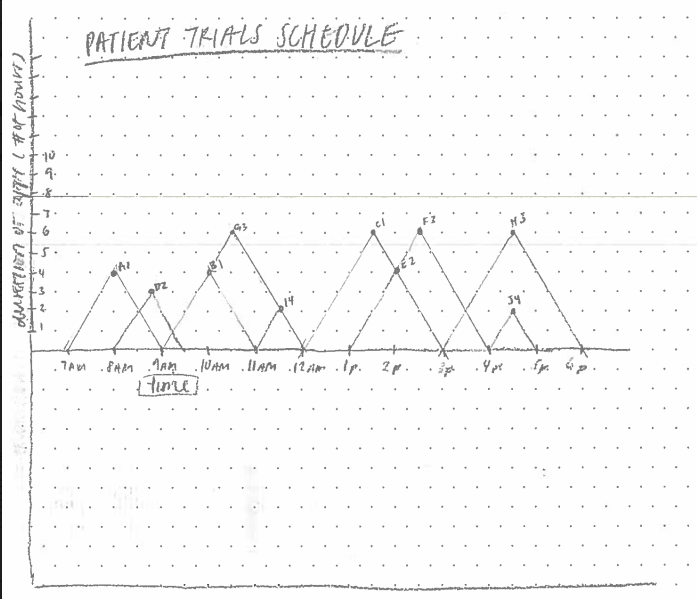 PATIENT TRIALS SCHEDULE
(# OF HOURS)
10
9
8
7
6
5
4
3
2
1
A1
D2
B1
G3
I4
C1
E2
F3
H3
J4
7AM 8AM 9AM 10AM 11AM 12AM 1p 2p 3p 4p 5p 6p
Time